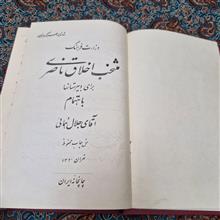 وزارت فرهنگ
منتخب اخلاق ناصری
برای دبیرستانها
باهتمام
آقای جلال همائی
حق چاپ محفوظ
تهران ۱۳۲۰
چاپخانه ایران